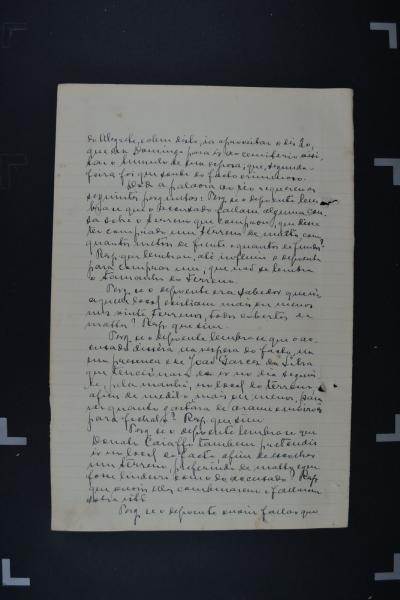 do Alegrete, e alem disto, ia aproveitar o dia 20,
que era Domingo para ir ao cemiterio visi-
tar o tumulo de sua esposa; que, segunda-
feira foi que soube do facto criminoso.
Dada a palavra ao réo requereu os
seguintes perguntas: Perg. se o depoente lem
bra-se que o accusado fallou alguma cou-
sa sobre o terreno que comprou, que disse
ter comprado um terreno de matto, com
quantos metros de frente e quantos de fundos?
Resp. que lembra, até insistiu o depoente
para comprar um, que não se lembra
o tamanho do terreno.
Perg. se o depoente era sabedor que n'a
aquelle local existiam mais ou menos
uns vinte terrenos, todos cobertos de
mattos? Resp. que sim.
Perg. se o depoente lembra-se que o ac-
cusado dissera na vespera do facto, na
sua presença e de João Garcez da Silva
que tencionava de ir no dia seguin-
te, pela manhã, no local do terreno,
afim de medil-o mais ou menos, para
ver quanto gastaria de arame e moirões
para fechal-o? Resp. que sim.
Perg. se o depoente lembra-se que
Donato Caiaffo tambem pretendia
ir no local do facto afim de escolher
um terreno, preferindo de matto e que
fosse lindeiro com o do accusado? Resp.
que ouviu elles combinarem e fallarem
sobre isto.
Perg. se o depoente ouviu fallar que